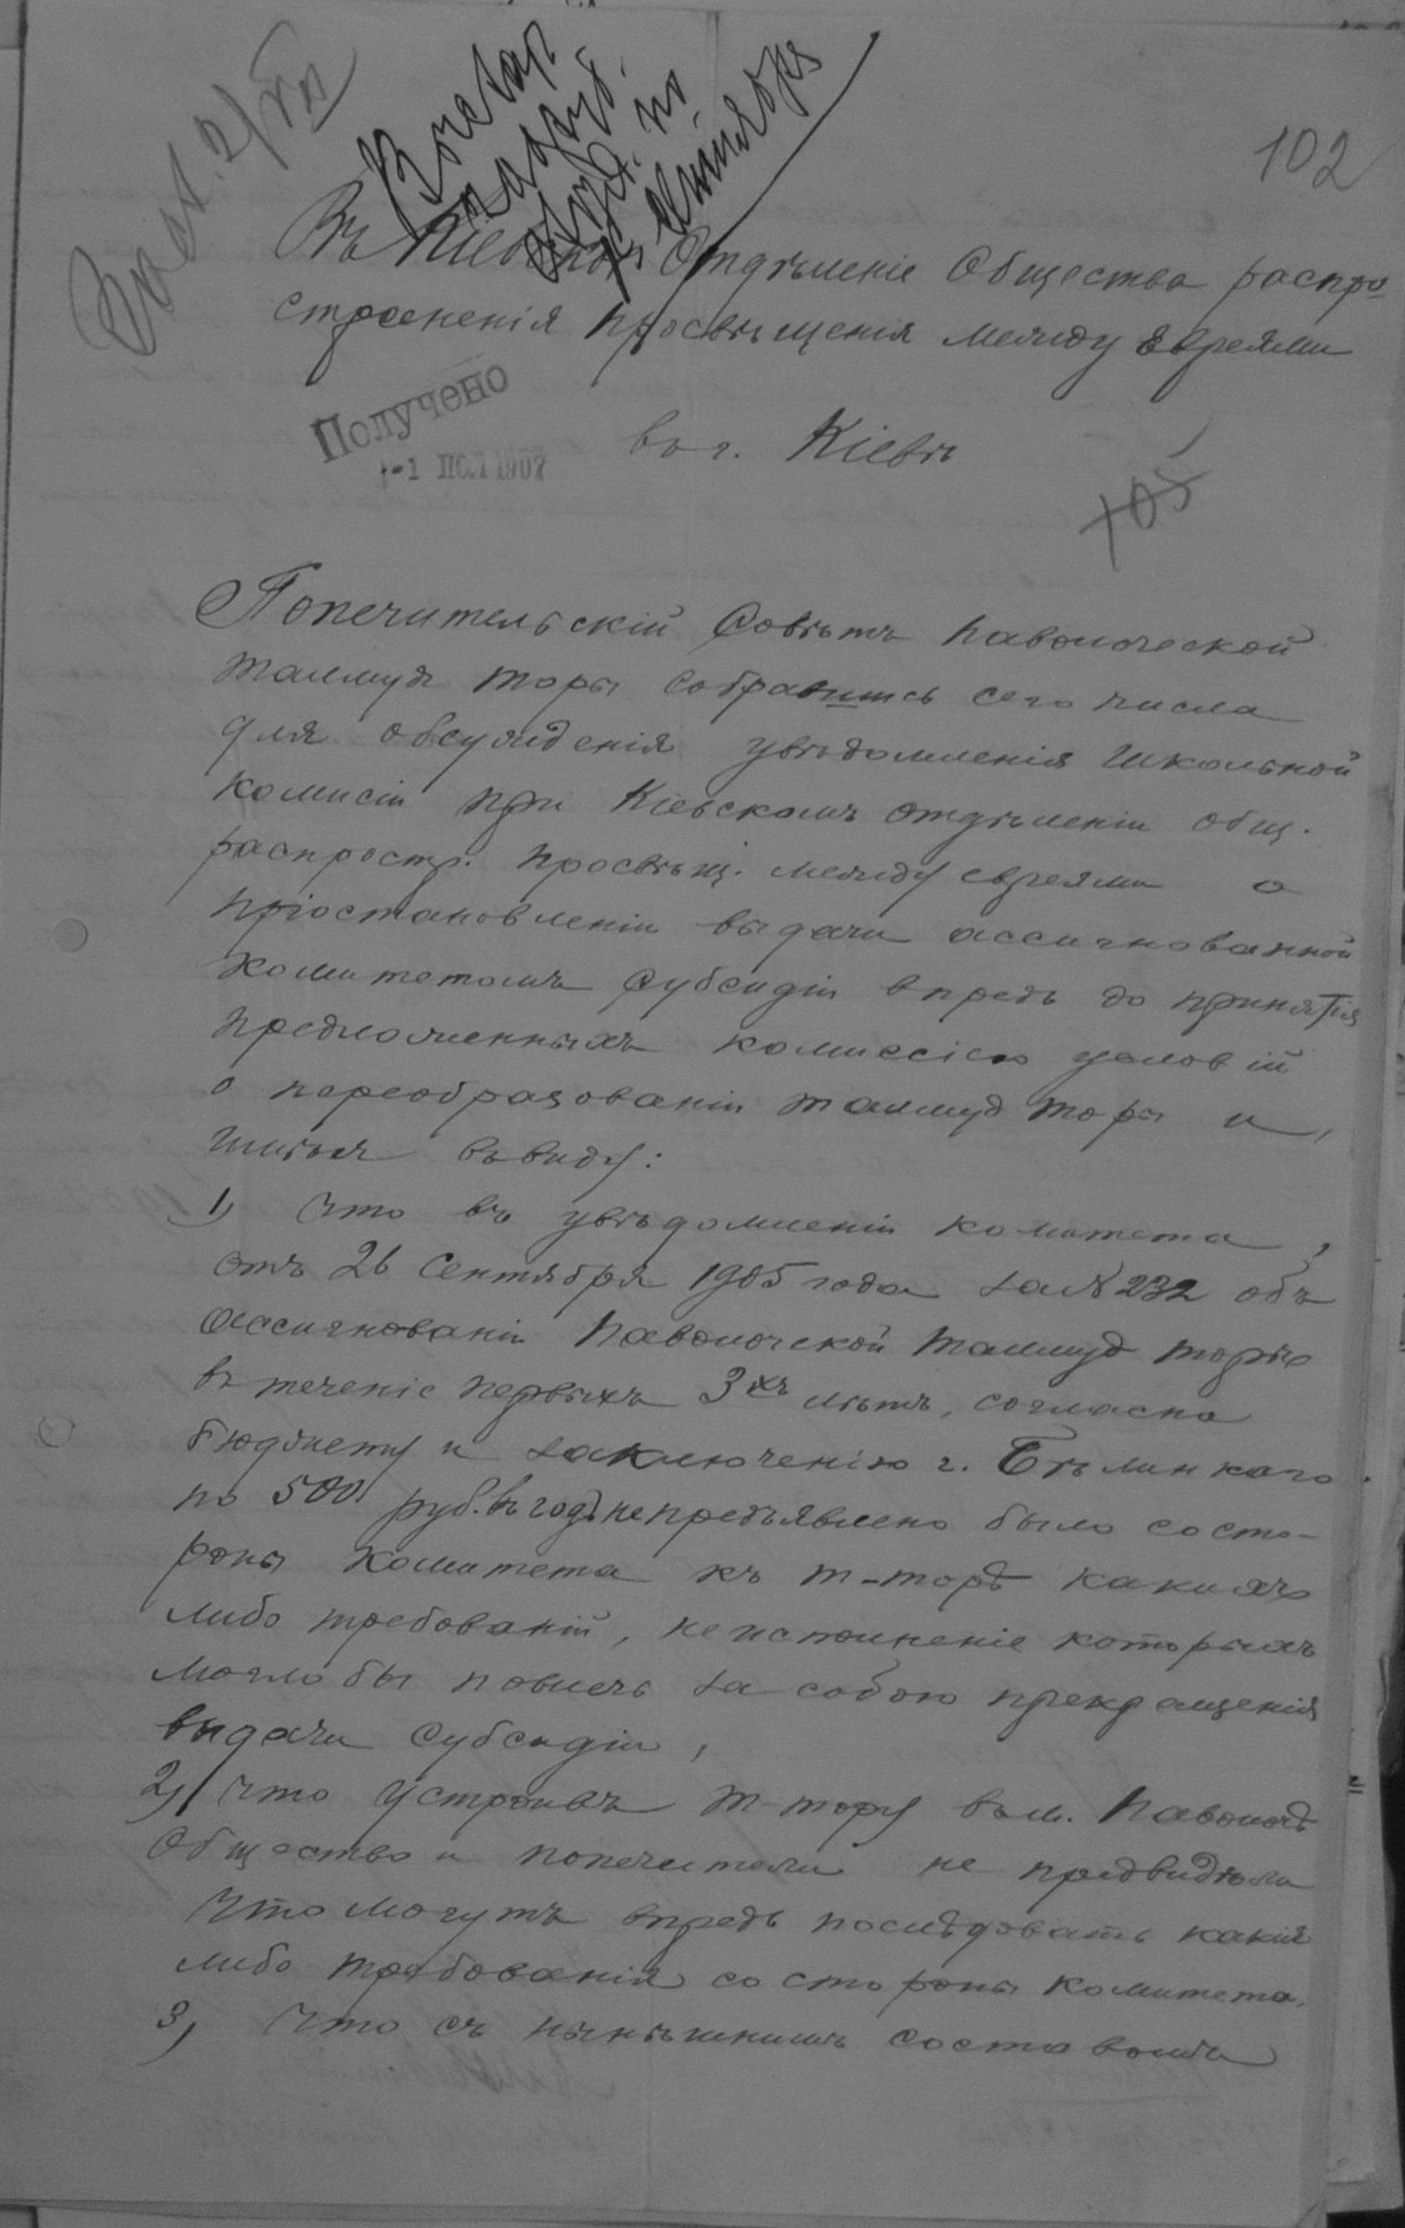 102
Въ Кіевское Отдѣленіе Общества распро
страненія просвѣщенія между Евреями
Получено
-1 ІЮЛ 1907
въ г. Кіевѣ
105
Попечительскій Совѣтъ Паволочеcкой
талмудъ торы собравшись сего числа
для обсужденія увѣдомленія школьной
комисіи при Кіевскомъ отдѣленіи общ.
распростр. просвѣщ. между евреями о
пріостановленіи выдачи ассигнованной
комитетомъ субсидіи впредь до принятія
предложенныхъ комиссіею условій
о переобразованіи талмуд торы и,
имѣя въ виду:
1) Что въ увѣдомленіи комитета,
отъ 26 Сентября 1905 года за № 232 объ
ассигнованіи Паволочской талмуд торѣ
въ теченіе первыхъ 3хъ лѣтъ, согласно
бюджету и заключенію г. Бѣлинкаго
по 500 руб. въ годъ не предъявлено было со сто-
роны комитета къ т-торѣ какихъ
либо требованій, неисполненіе которыхъ
могло бы повлечь за собою прекращенія
выдачи субсидіи,
2) Что устроивъ т-тору въ м. Паволочѣ
Общество и попечители не предвидѣли
что могутъ впредь послѣдовать какія
либо требованія со стороны комитета,
3) Что съ нынѣшнимъ составомъ